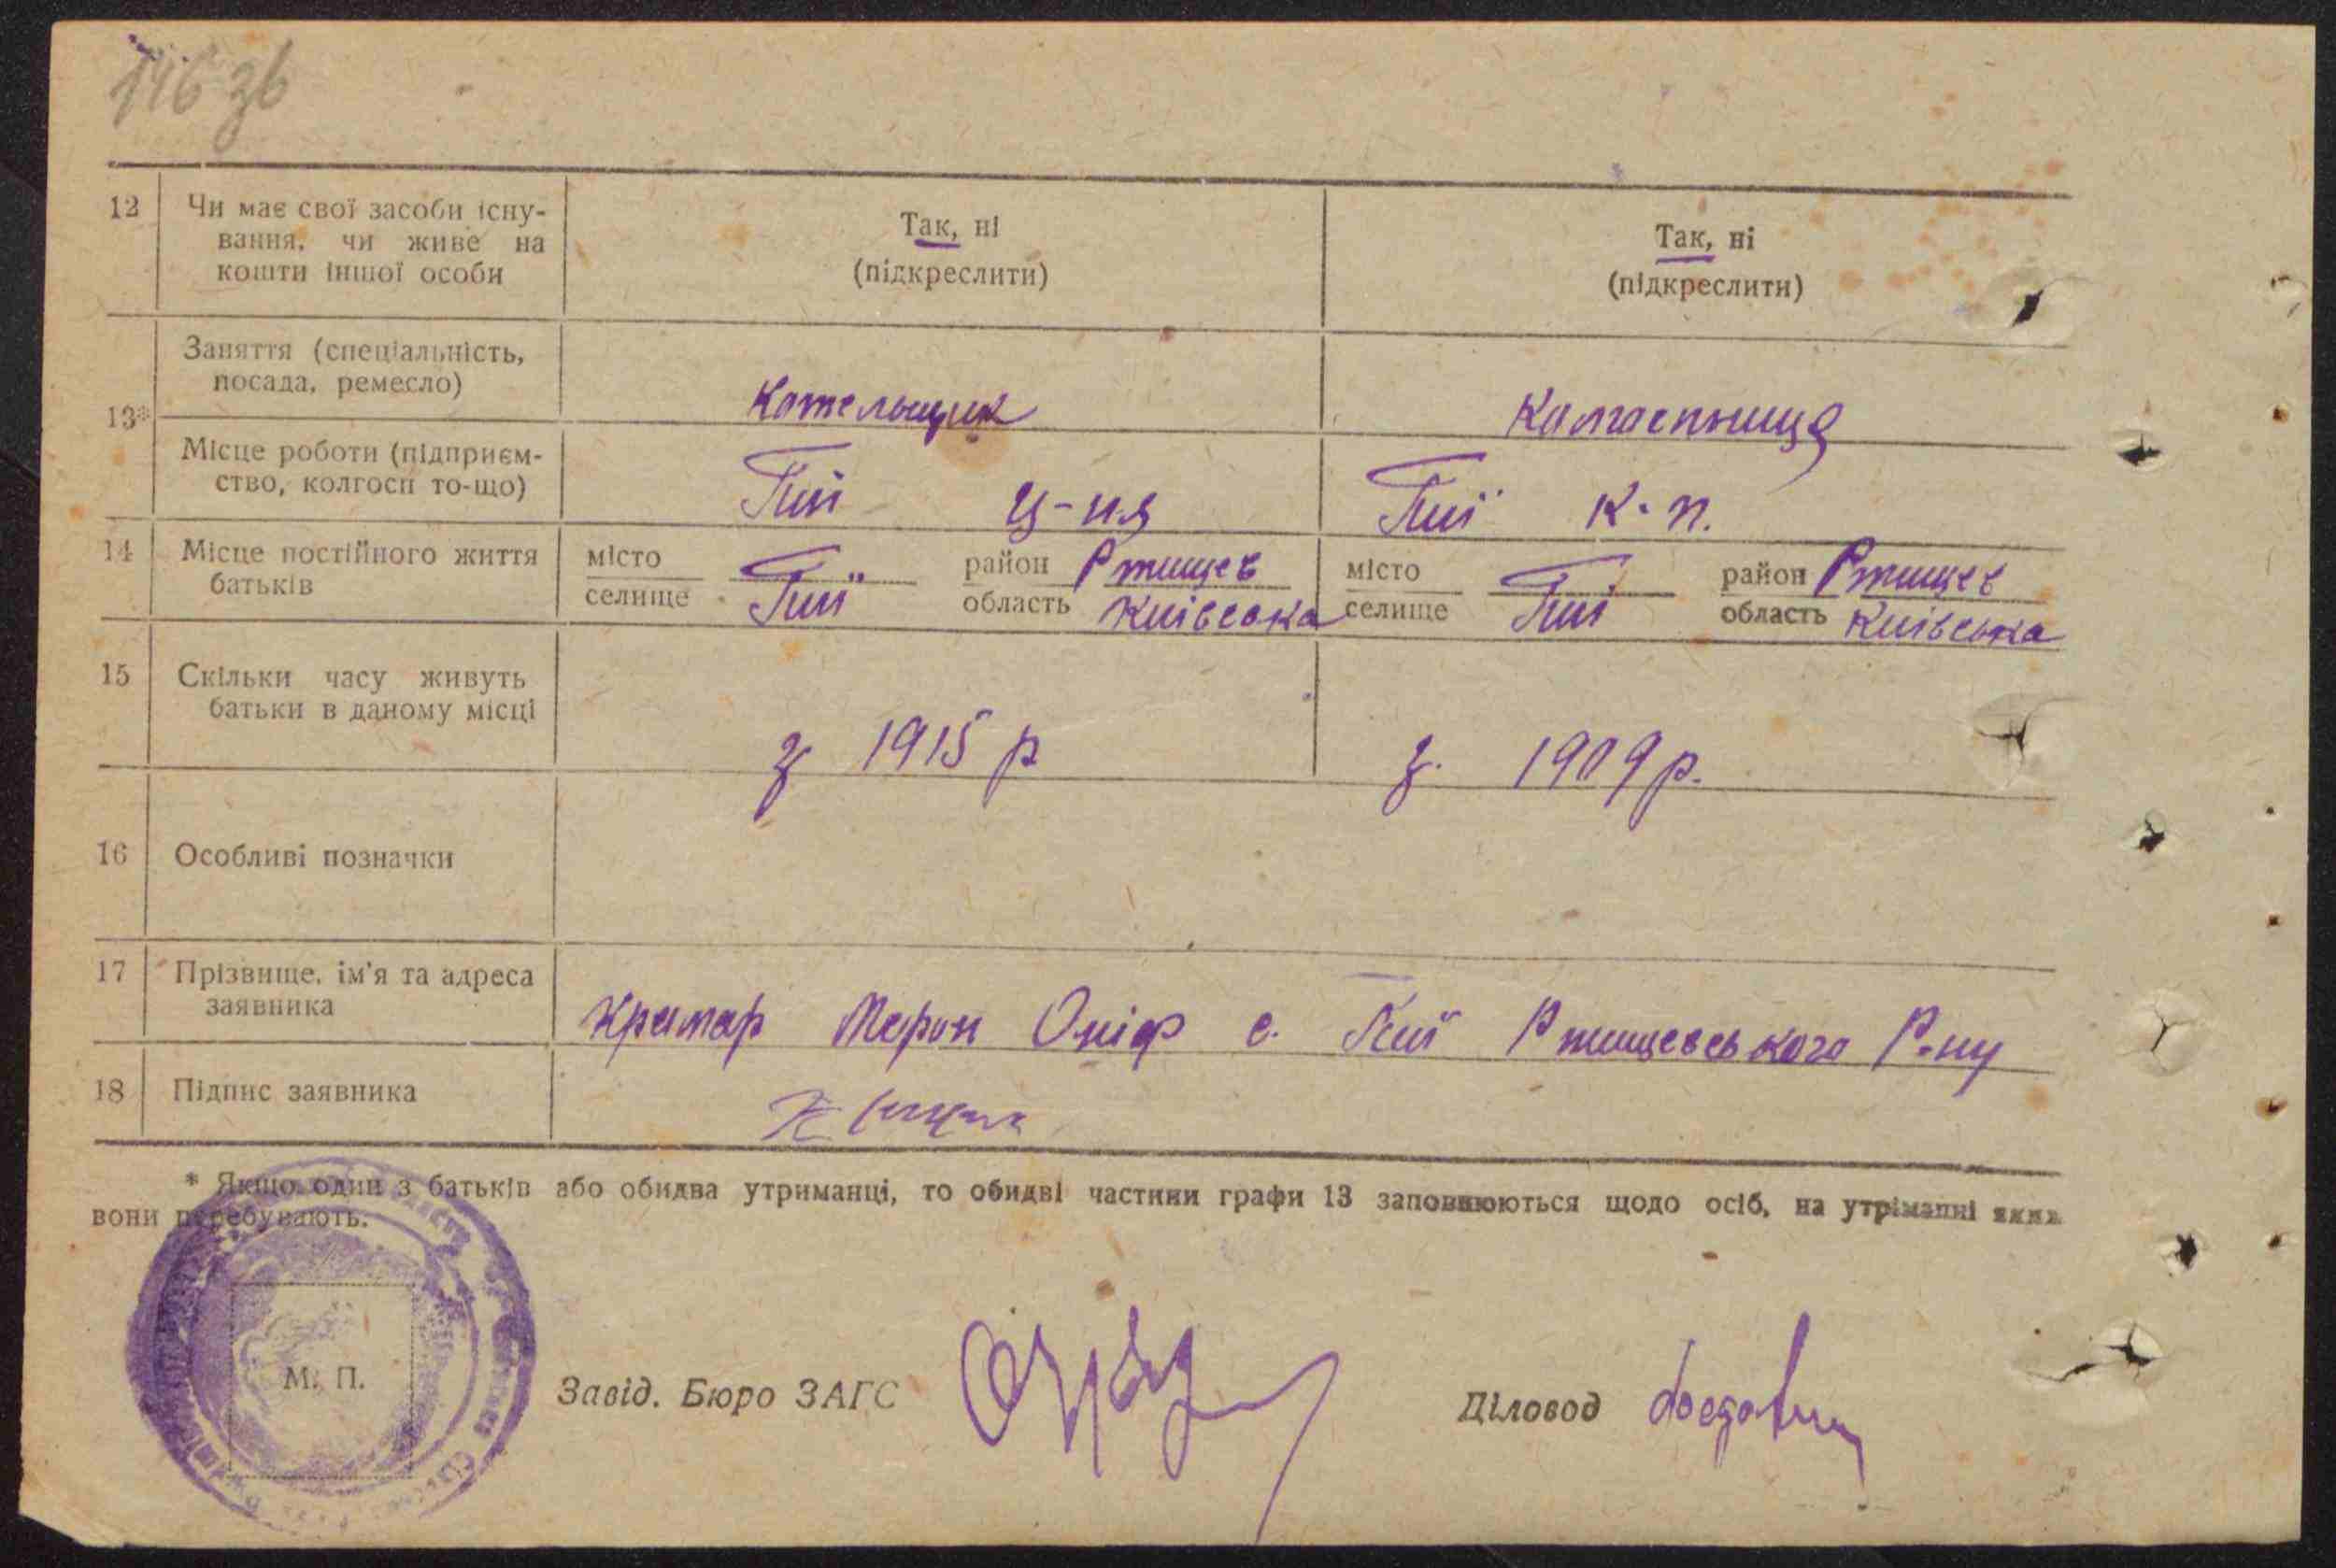 146 зв
12
Чи має свої засоби існу-
вання, чи живе на
кошти іншої особи
Так, ні
(підкреслити)
Так, ні
(підкреслити)
13*
Заняття (спеціальність,
посада, ремесло)
Котельщик
Колгоспниця
Місце роботи (підприєм-
ство, колгосп то-що)
Пиї ц-ня
Пиї к-п.
14
Місце постійного життя
батьків
місто
селище
Пиї
район Ртищев
область Київська
місто
селище
Пиї
район Ртищев
область Київська
15
Скільки часу живуть
батьки в даному місці
з 1915 р
з. 1909 р.
16
Особливі позначки
17
Прізвище, ім'я та адреса
заявника
Крамар Мерон Оніф с. Пиї Ртищевського Р-ну
18
Підпис заявника
* Якщо один з батьків або обидва утриманці, то обидві частини графи 13 заповнюються щодо осіб, на утріманні яких
вони перебувають.
М. П.
Завід. Бюро ЗАГС
Діловод